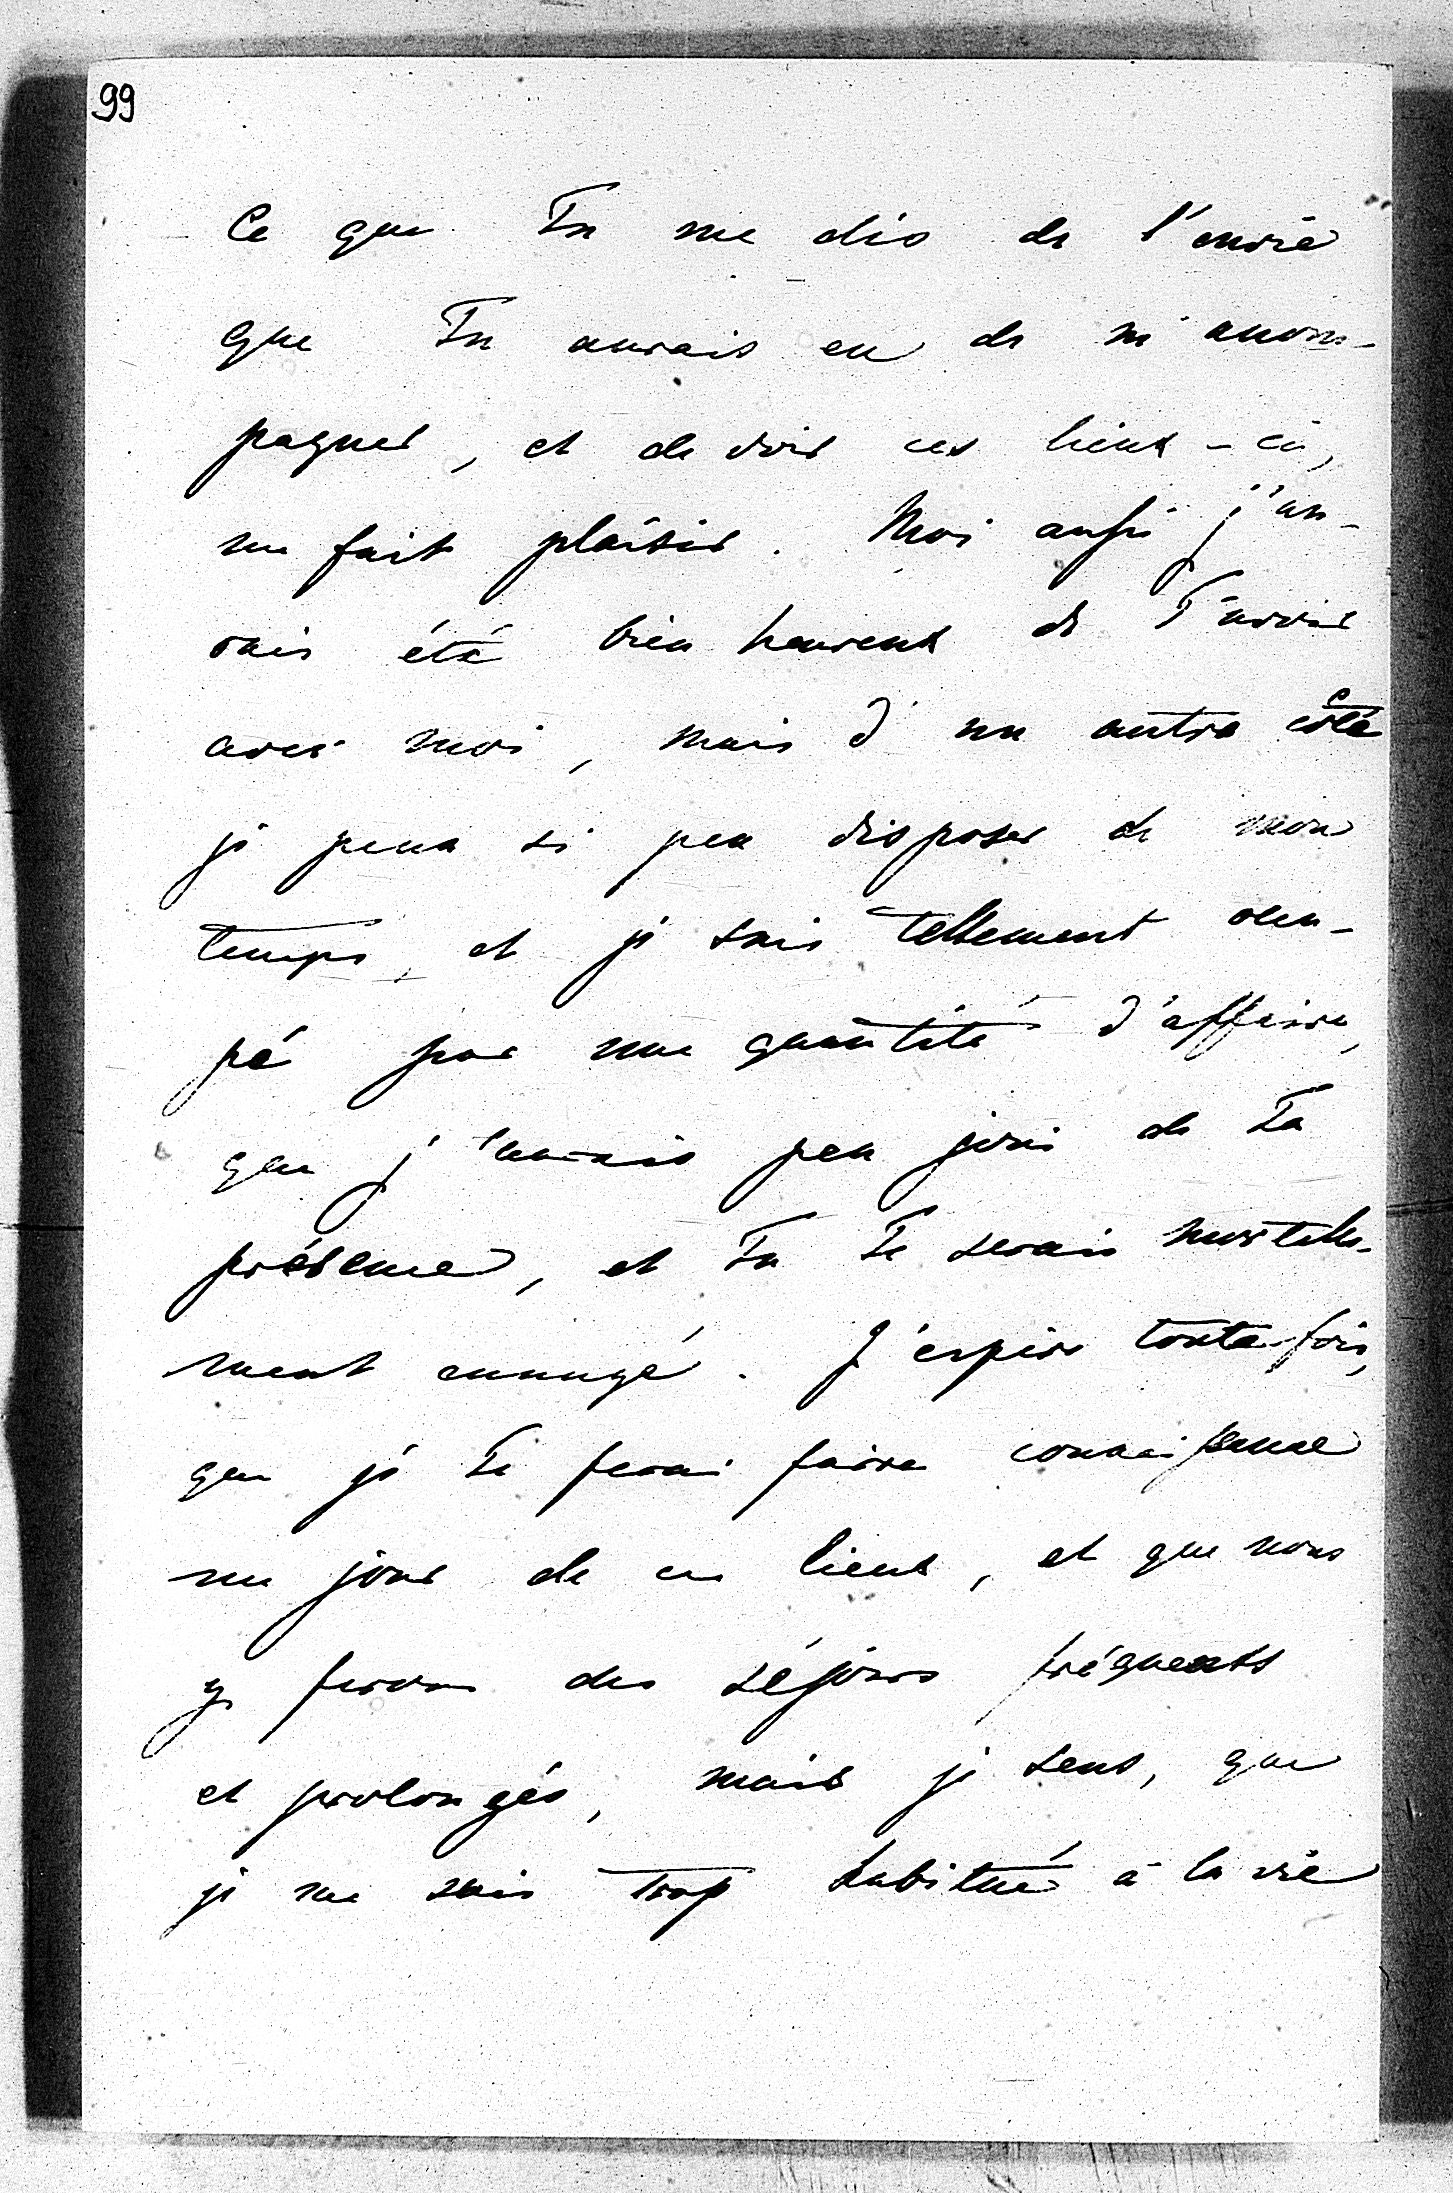 99
Ce que Tu me dis de l'envie
que Tu aurais eu de m'accom-
pagner, et de voir ces lieux-ci,
me fait plaisir. Moi aussi j'au-
rais été bien heureux de T'avoir
avec moi, mais d'un autre côté
je peux si peu disposer de mon
temps, et je suis tellement occu-
pé par une quantité d'affaires,
que j'aurais peu joui de Ta
présence, et Tu Te serais mortelle-
ment ennuyé. J'espère toute-fois,
que je Te ferai faire connaissance
un jour de ces lieux, et que nous
y ferons des séjours fréquents
et prolongés, mais je sens, que
je me suis trop habitué à la vie